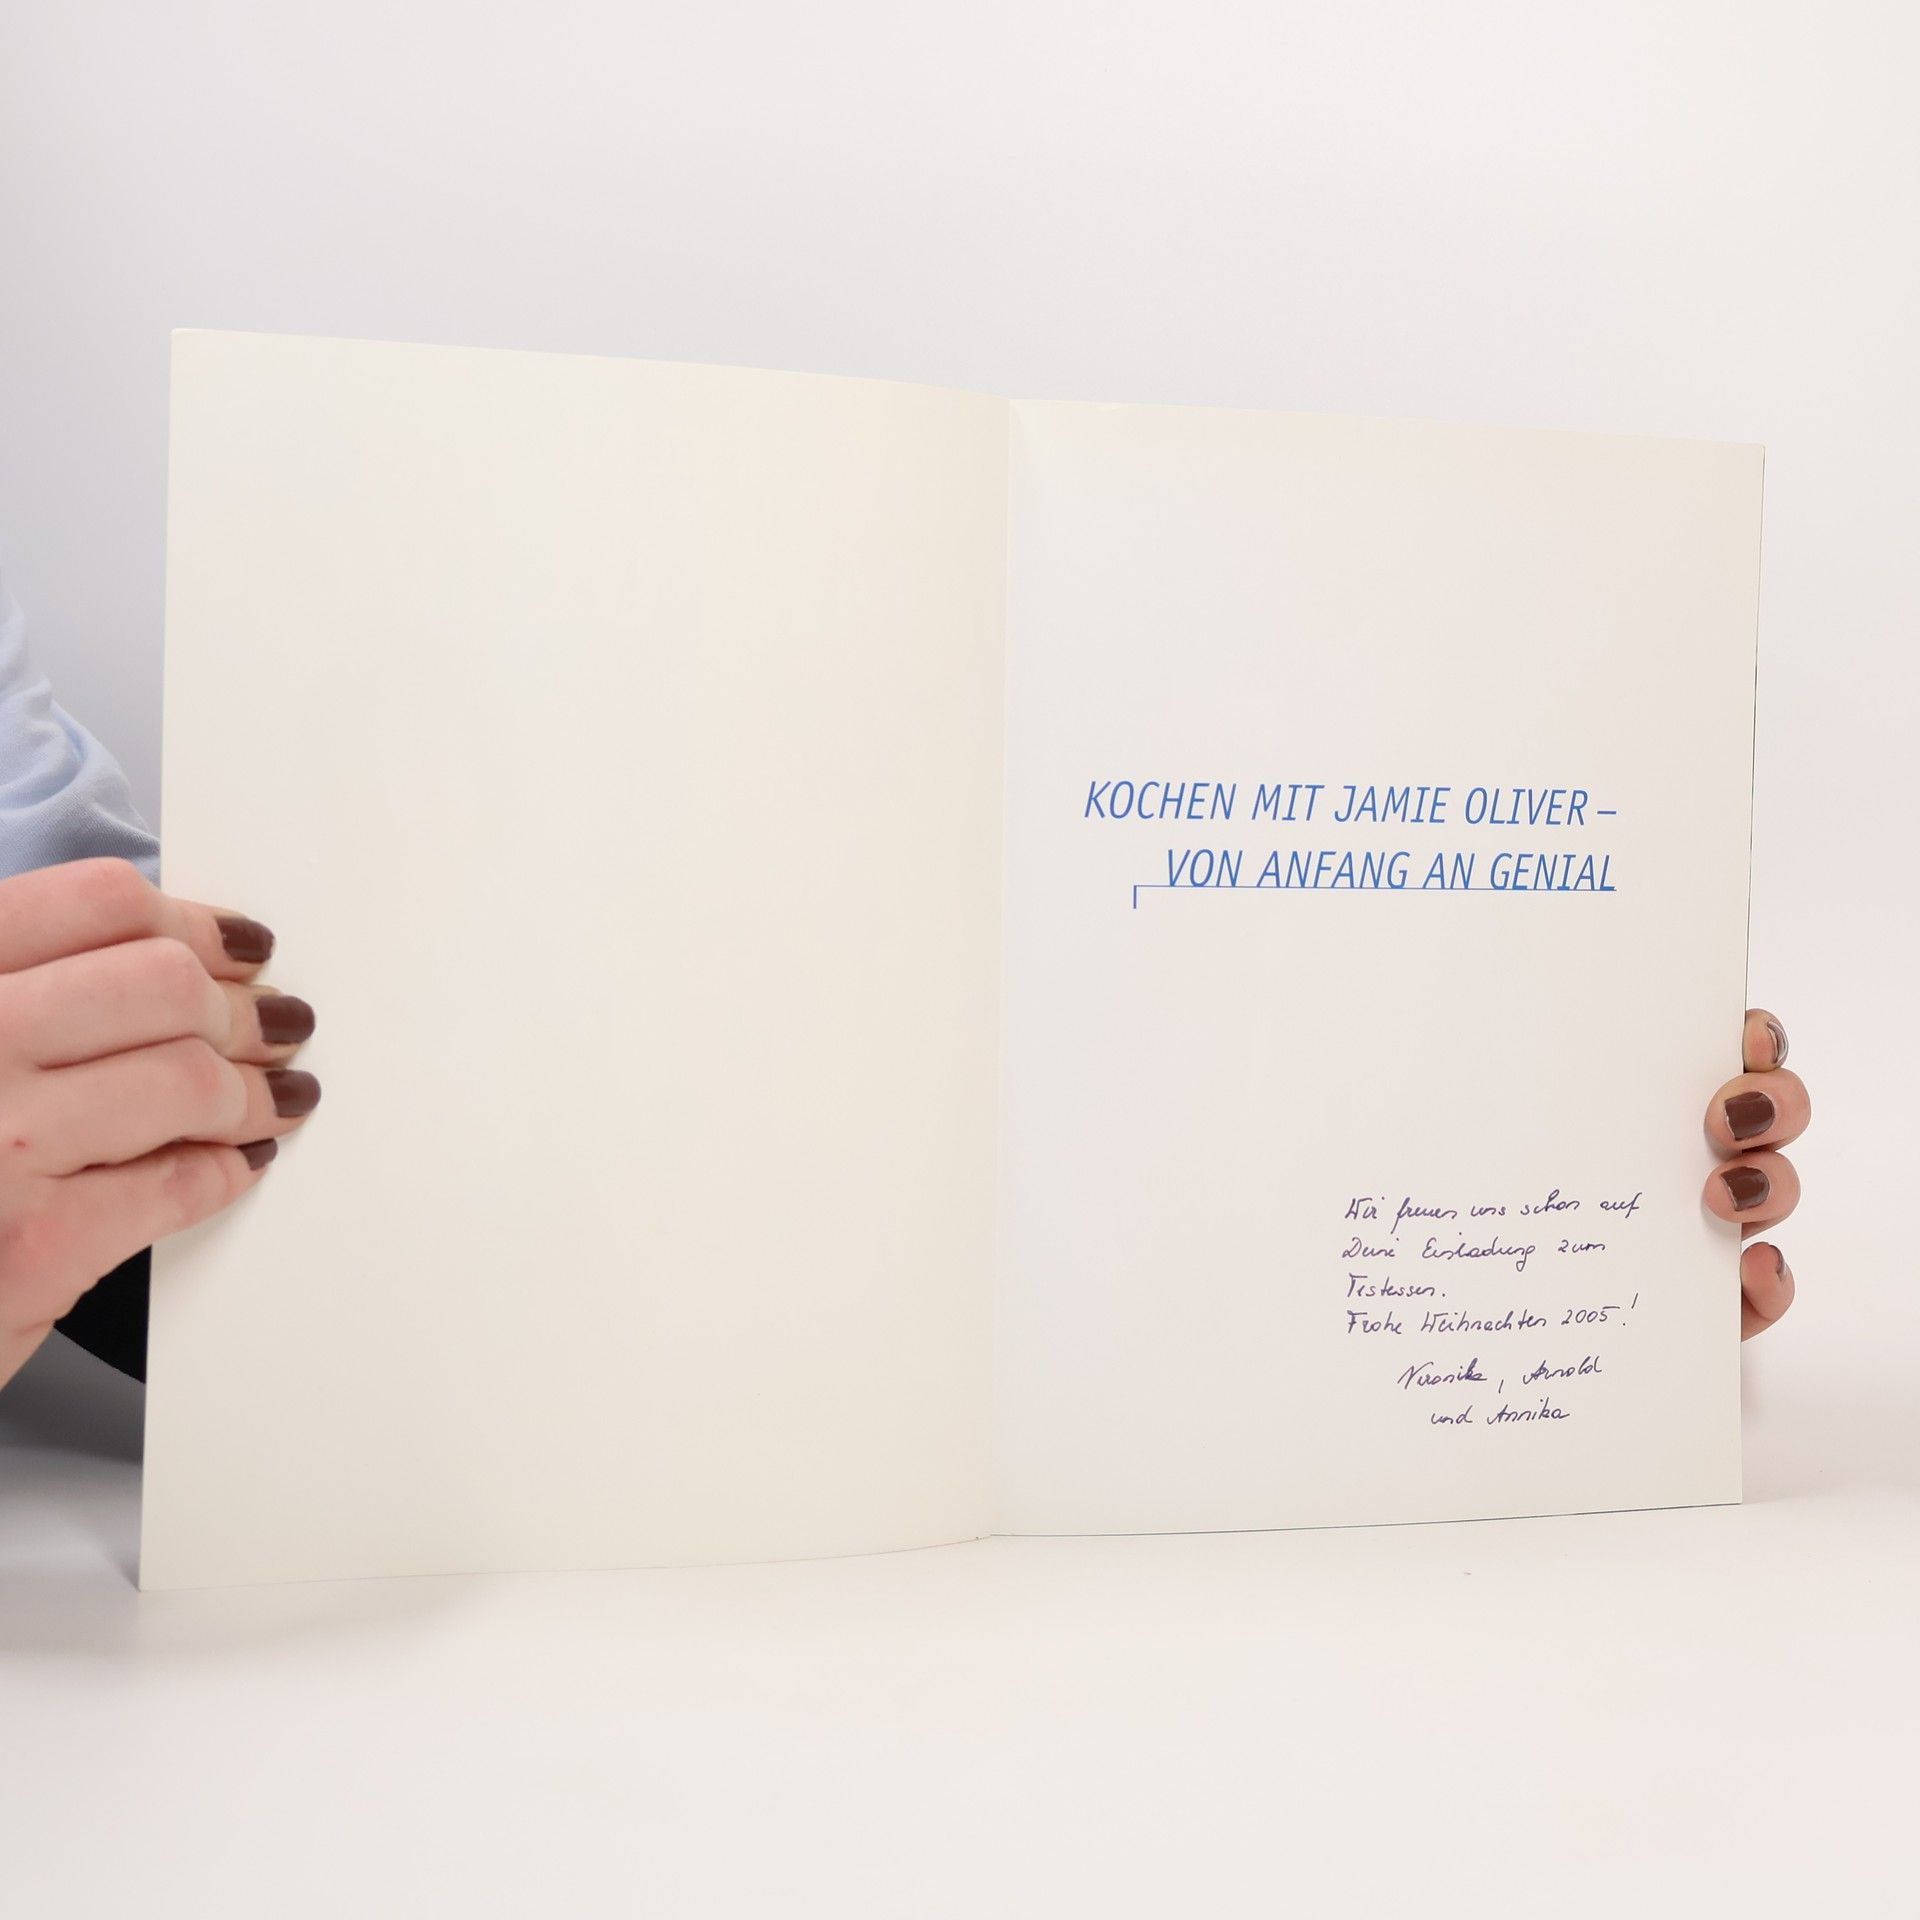 KOCHEN MIT JAMIE OLIVER –
VON ANFANG AN GENIAL
Wir freuen uns schon auf
Deine Einladung zum
Testessen.
Frohe Weihnachten 2005!
Veronika, Arnold
und Annika